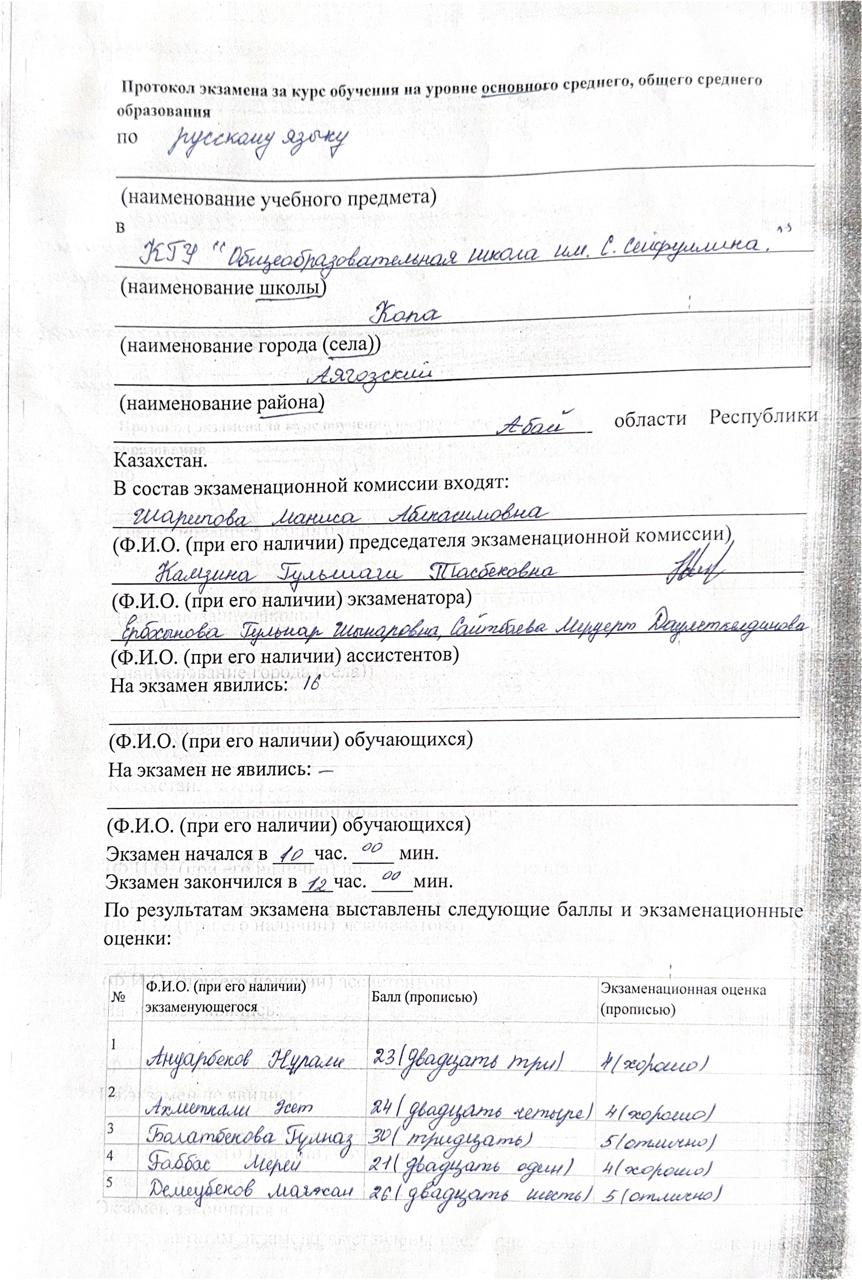 Протокол экзамена за курс обучения на уровне основного среднего, общего среднего
образования
по русскому языку
(наименование учебного предмета)
в
КГУ "Общеобразовательная школа им. С. Сейфуллина."
(наименование школы)
Копа
(наименование города (села))
Аягозский
(наименование района)
Абай области Республики
Казахстан.
В состав экзаменационной комиссии входят:
Шарипова Маниса Абикасимовна
(Ф.И.О. (при его наличии) председателя экзаменационной комиссии)
Камзина Гульшаги Тасбековна
(Ф.И.О. (при его наличии) экзаменатора)
Ербосынова Гульнар Шынаровна, Сайтбаева Меруерт Даулеткелдинова
(Ф.И.О. (при его наличии) ассистентов)
На экзамен явились: 16
(Ф.И.О. (при его наличии) обучающихся)
На экзамен не явились: –
(Ф.И.О. (при его наличии) обучающихся)
Экзамен начался в 10 час. 00 мин.
Экзамен закончился в 12 час. 00 мин.
По результатам экзамена выставлены следующие баллы и экзаменационные
оценки:
№ Ф.И.О. (при его наличии) экзаменующегося Балл (прописью) Экзаменационная оценка (прописью)
1 Ануарбеков Нурали 23 (двадцать три) 4 (хорошо)
2 Ахметкали Эсет 24 (двадцать четыре) 4 (хорошо)
3 Болатбекова Гулназ 30 (тридцать) 5 (отлично)
4 Ғаббас Мерей 21 (двадцать один) 4 (хорошо)
5 Демеубеков Маяжан 26 (двадцать шесть) 5 (отлично)